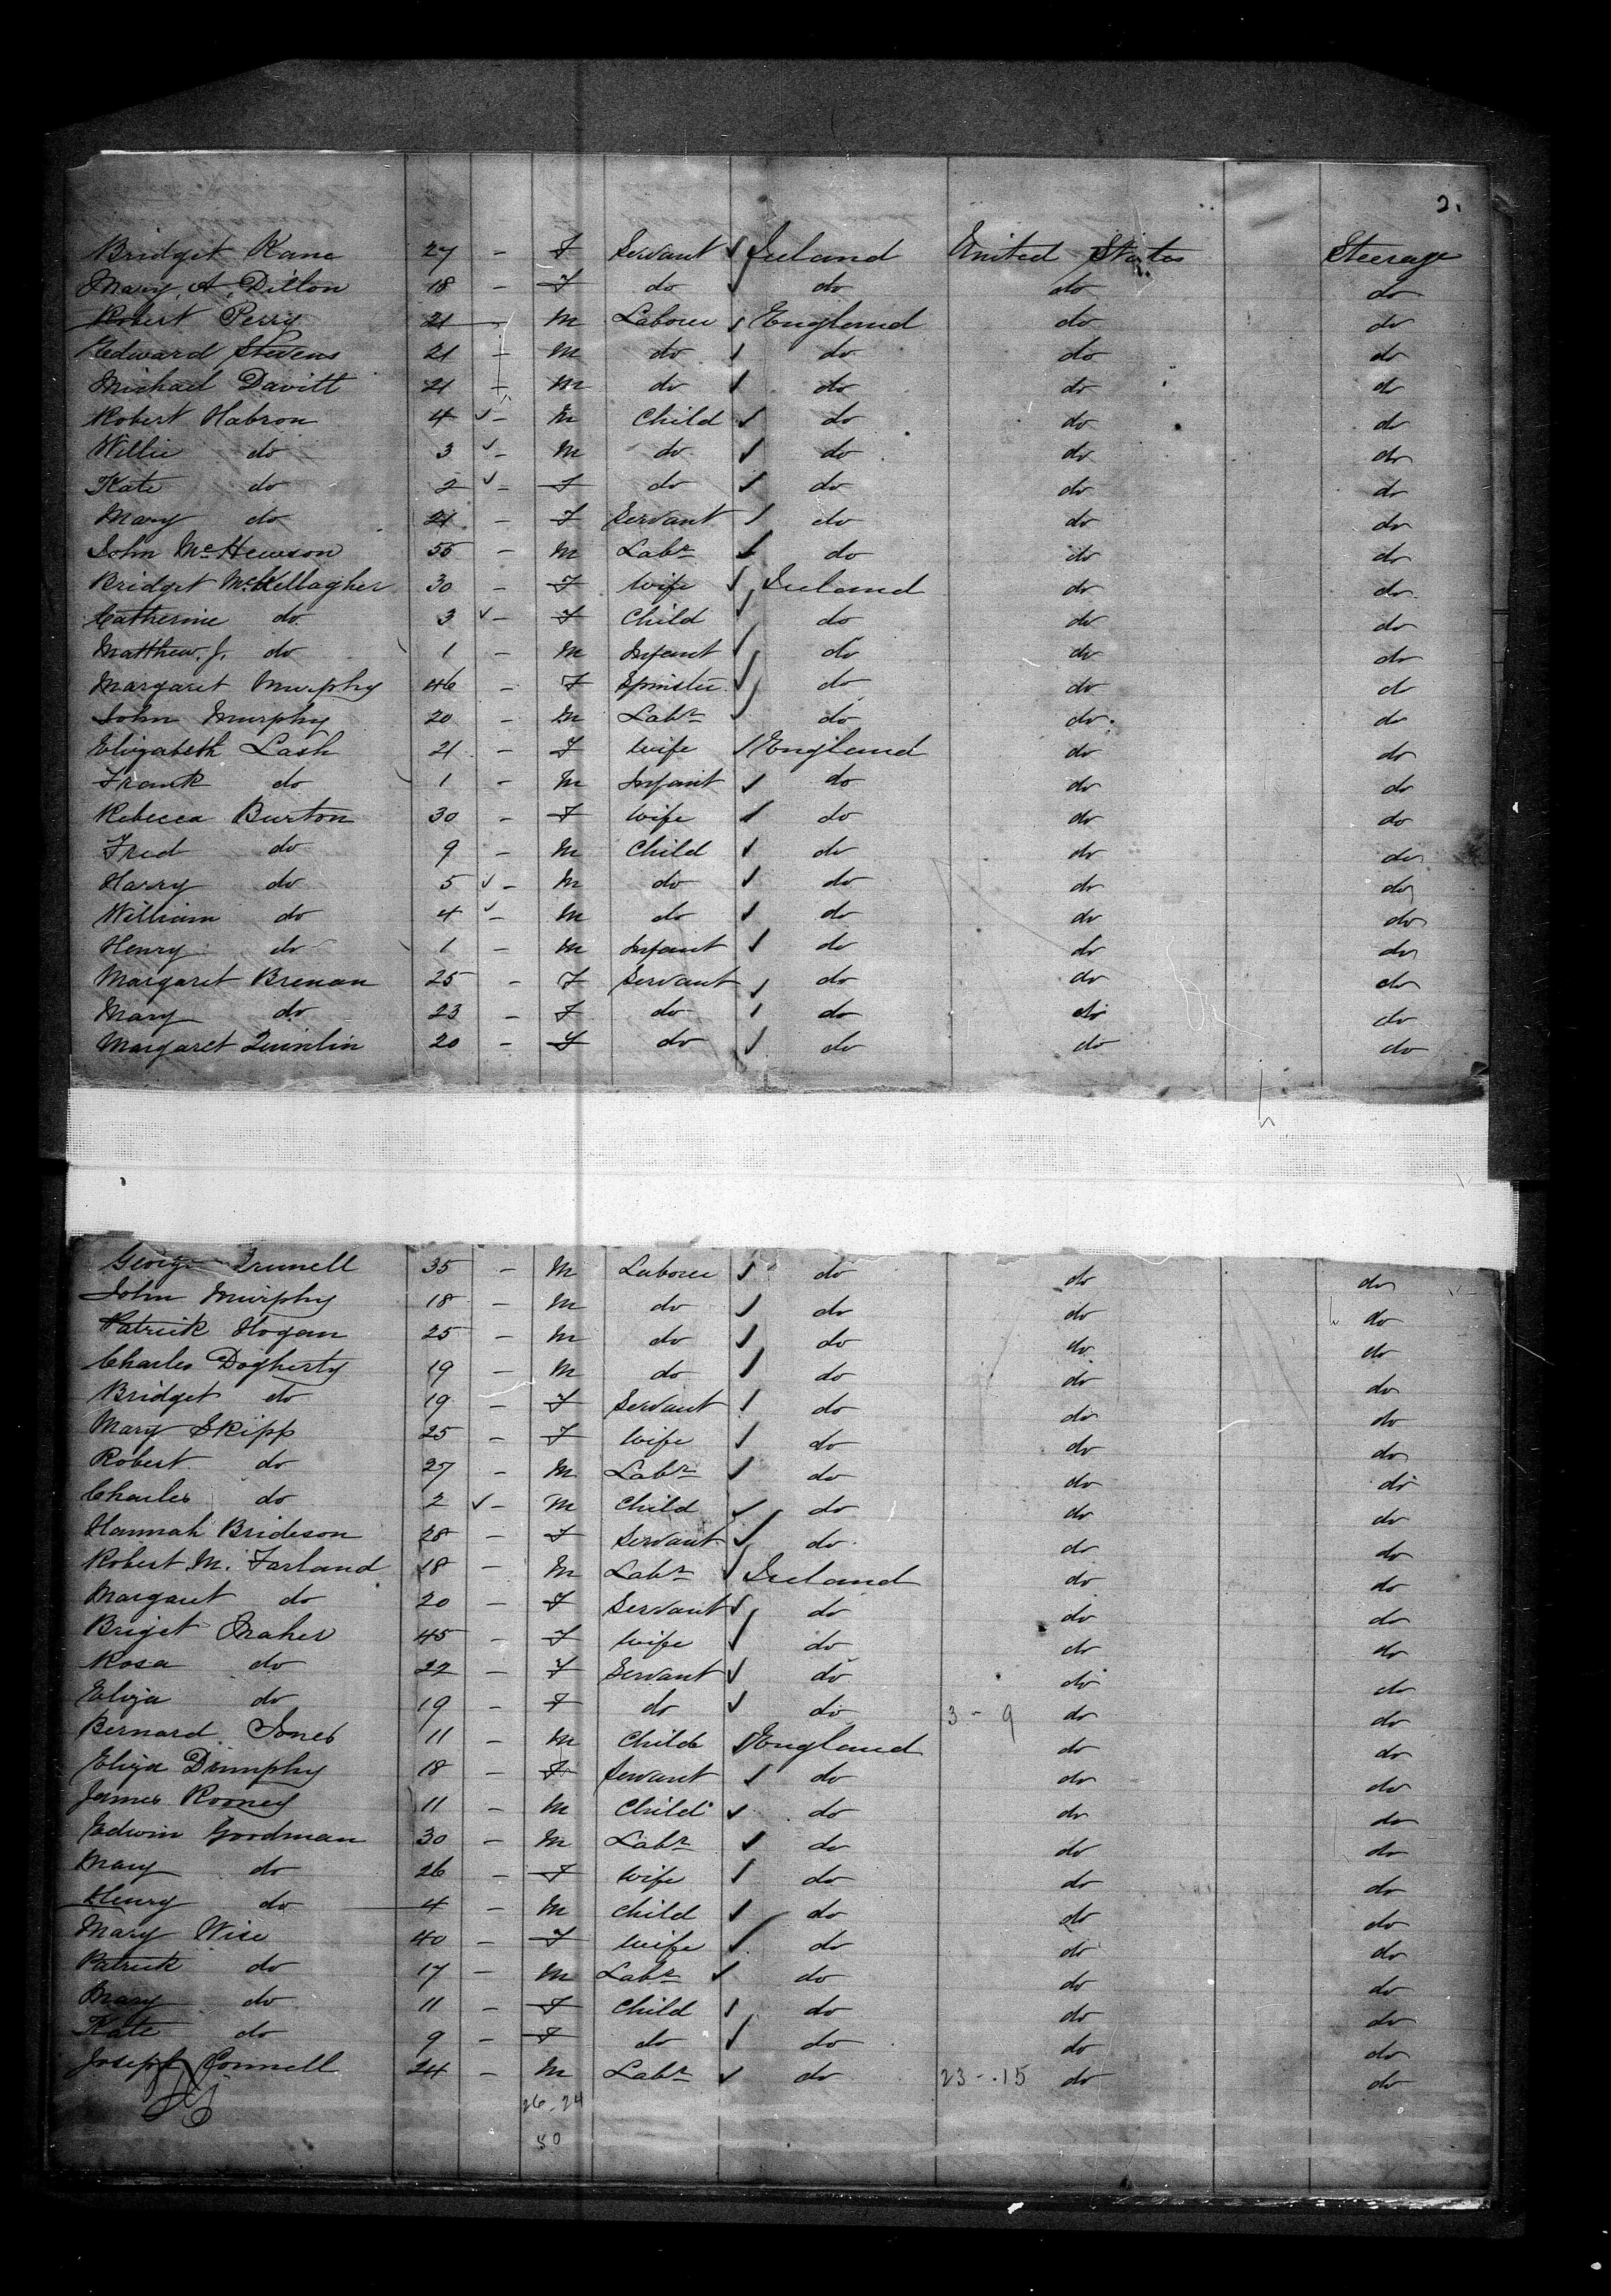 2.
Bridget Kane 27 - F Servant Ireland United States Steerage
Mary A. Dillon 18 - F do do do do
Robert Perry 21 - M Laborer England do do
Edward Stevens 21 - M do do do do
Michael Davitt 21 - M do do do do
Robert Habron 4 - M Child do do do
Willie do 3 - M do do do do
Kate do 2 - F do do do do
Mary do 21 - F Servant do do do
John McHewson 55 - M Labr do do do
Bridget McKellagher 30 - F Wife Ireland do do
Catherine do 3 - F Child do do do
Matthew J. do 1 - M Infant do do do
Margaret Murphy 46 - F Spinster do do do
John Murphy 20 - M Labr do do do
Elizabeth Lash 21 - F Wife England do do
Frank do 1 - M Infant do do do
Rebecca Burton 30 - F Wife do do do
Fred do 9 - M Child do do do
Harry do 5 - M do do do do
William do 4 - M do do do do
Henry do 1 - M Infant do do do
Margaret Brenan 25 - F Servant do do do
Mary do 23 - F do do do do
Margaret Quinlin 20 - F do do do do
George 35 - M Laborer do do do
John Murphy 18 - M do do do do
Patrick Hogan 25 - M do do do do
Charles Dogherty 19 - M do do do do
Bridget do 19 - F Servant do do do
Mary Skipp 25 - F Wife do do do
Robert do 27 - M Labr do do do
Charles do 2 - M Child do do do
Hannah Brideson 28 - F Servant do do do
Robert M. Farland 18 - M Labr Ireland do do
Margaret do 20 - F Servant do do do
Briget Maher 45 - F Wife do do do
Rosa do 22 - F Servant do do do
Eliza do 19 - F do do 3 - 9 do do
Bernard Jones 11 - M Child England do do
Eliza Dunphy 18 - F Servant do do do
James Rooney 11 - M Child do do do
Edwin Goodman 30 - M Labr do do do
Mary do 26 - F Wife do do do
Henry do 4 - M Child do do do
Mary Wise 40 - F Wife do do do
Patrick do 17 - M Labr do do do
Mary do 11 - F Child do do do
Kate do 9 - F do do do do
Joseph Connell 24 - M Labr do 23 - 15 do do
26-24
50